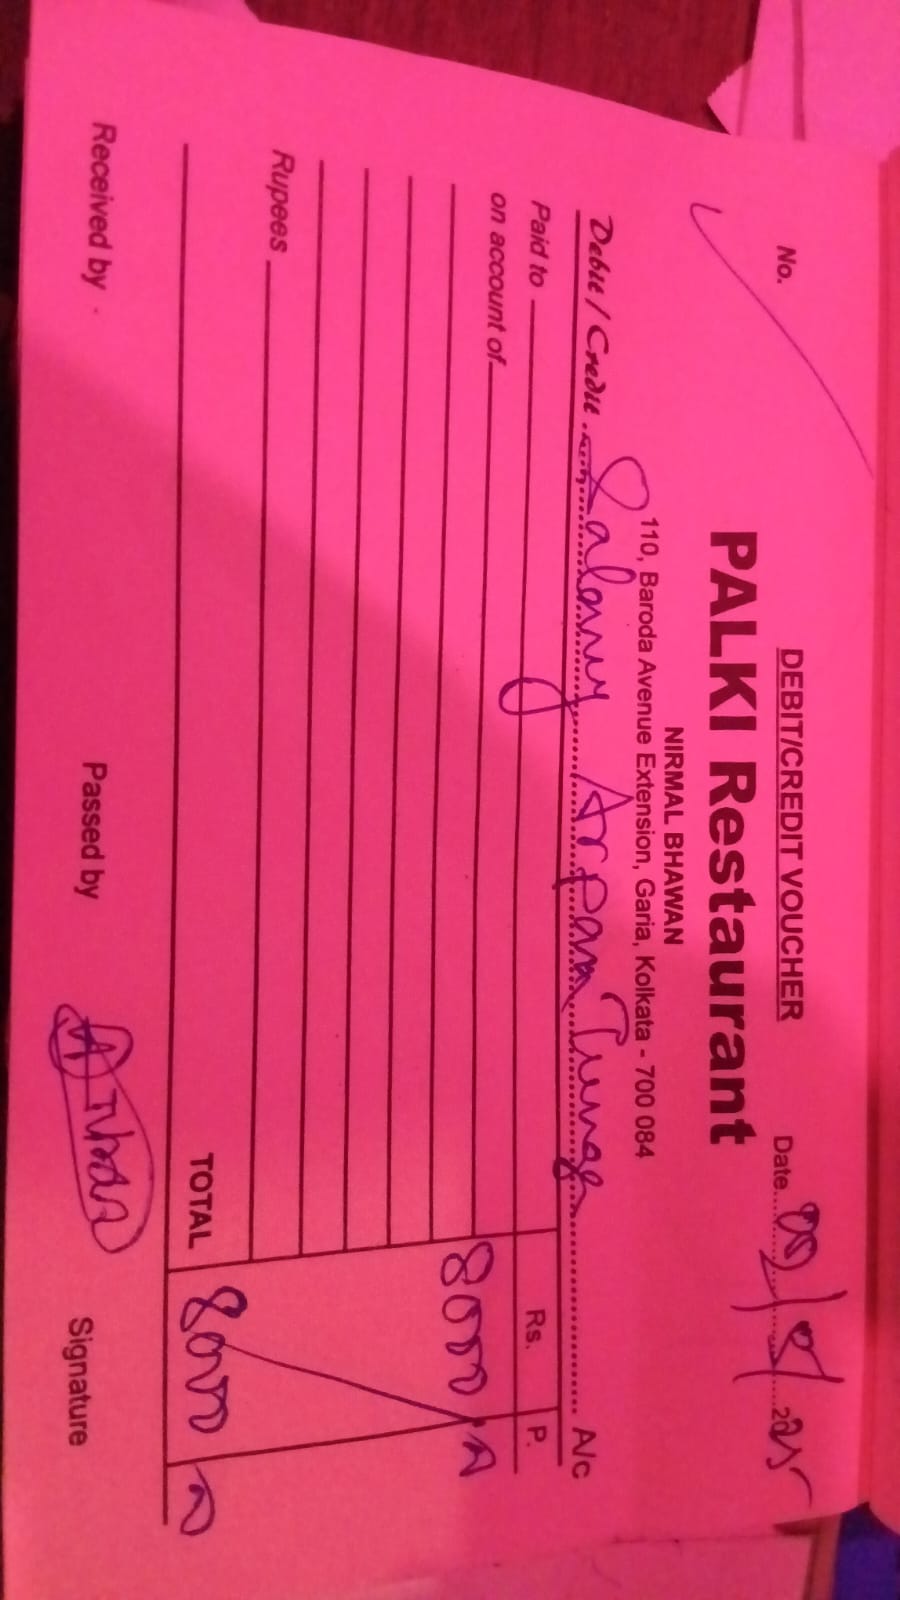 DEBIT/CREDIT VOUCHER
No.
Date
PALKI Restaurant
NIRMAL BHAWAN
110, Baroda Avenue Extension, Garia, Kolkata - 700 084
Debit / Credit Salary Arpan Tunga A/c
Paid to
Rs. P.
on account of
8000
Rupees
TOTAL 8000
Received by
Passed by
Signature